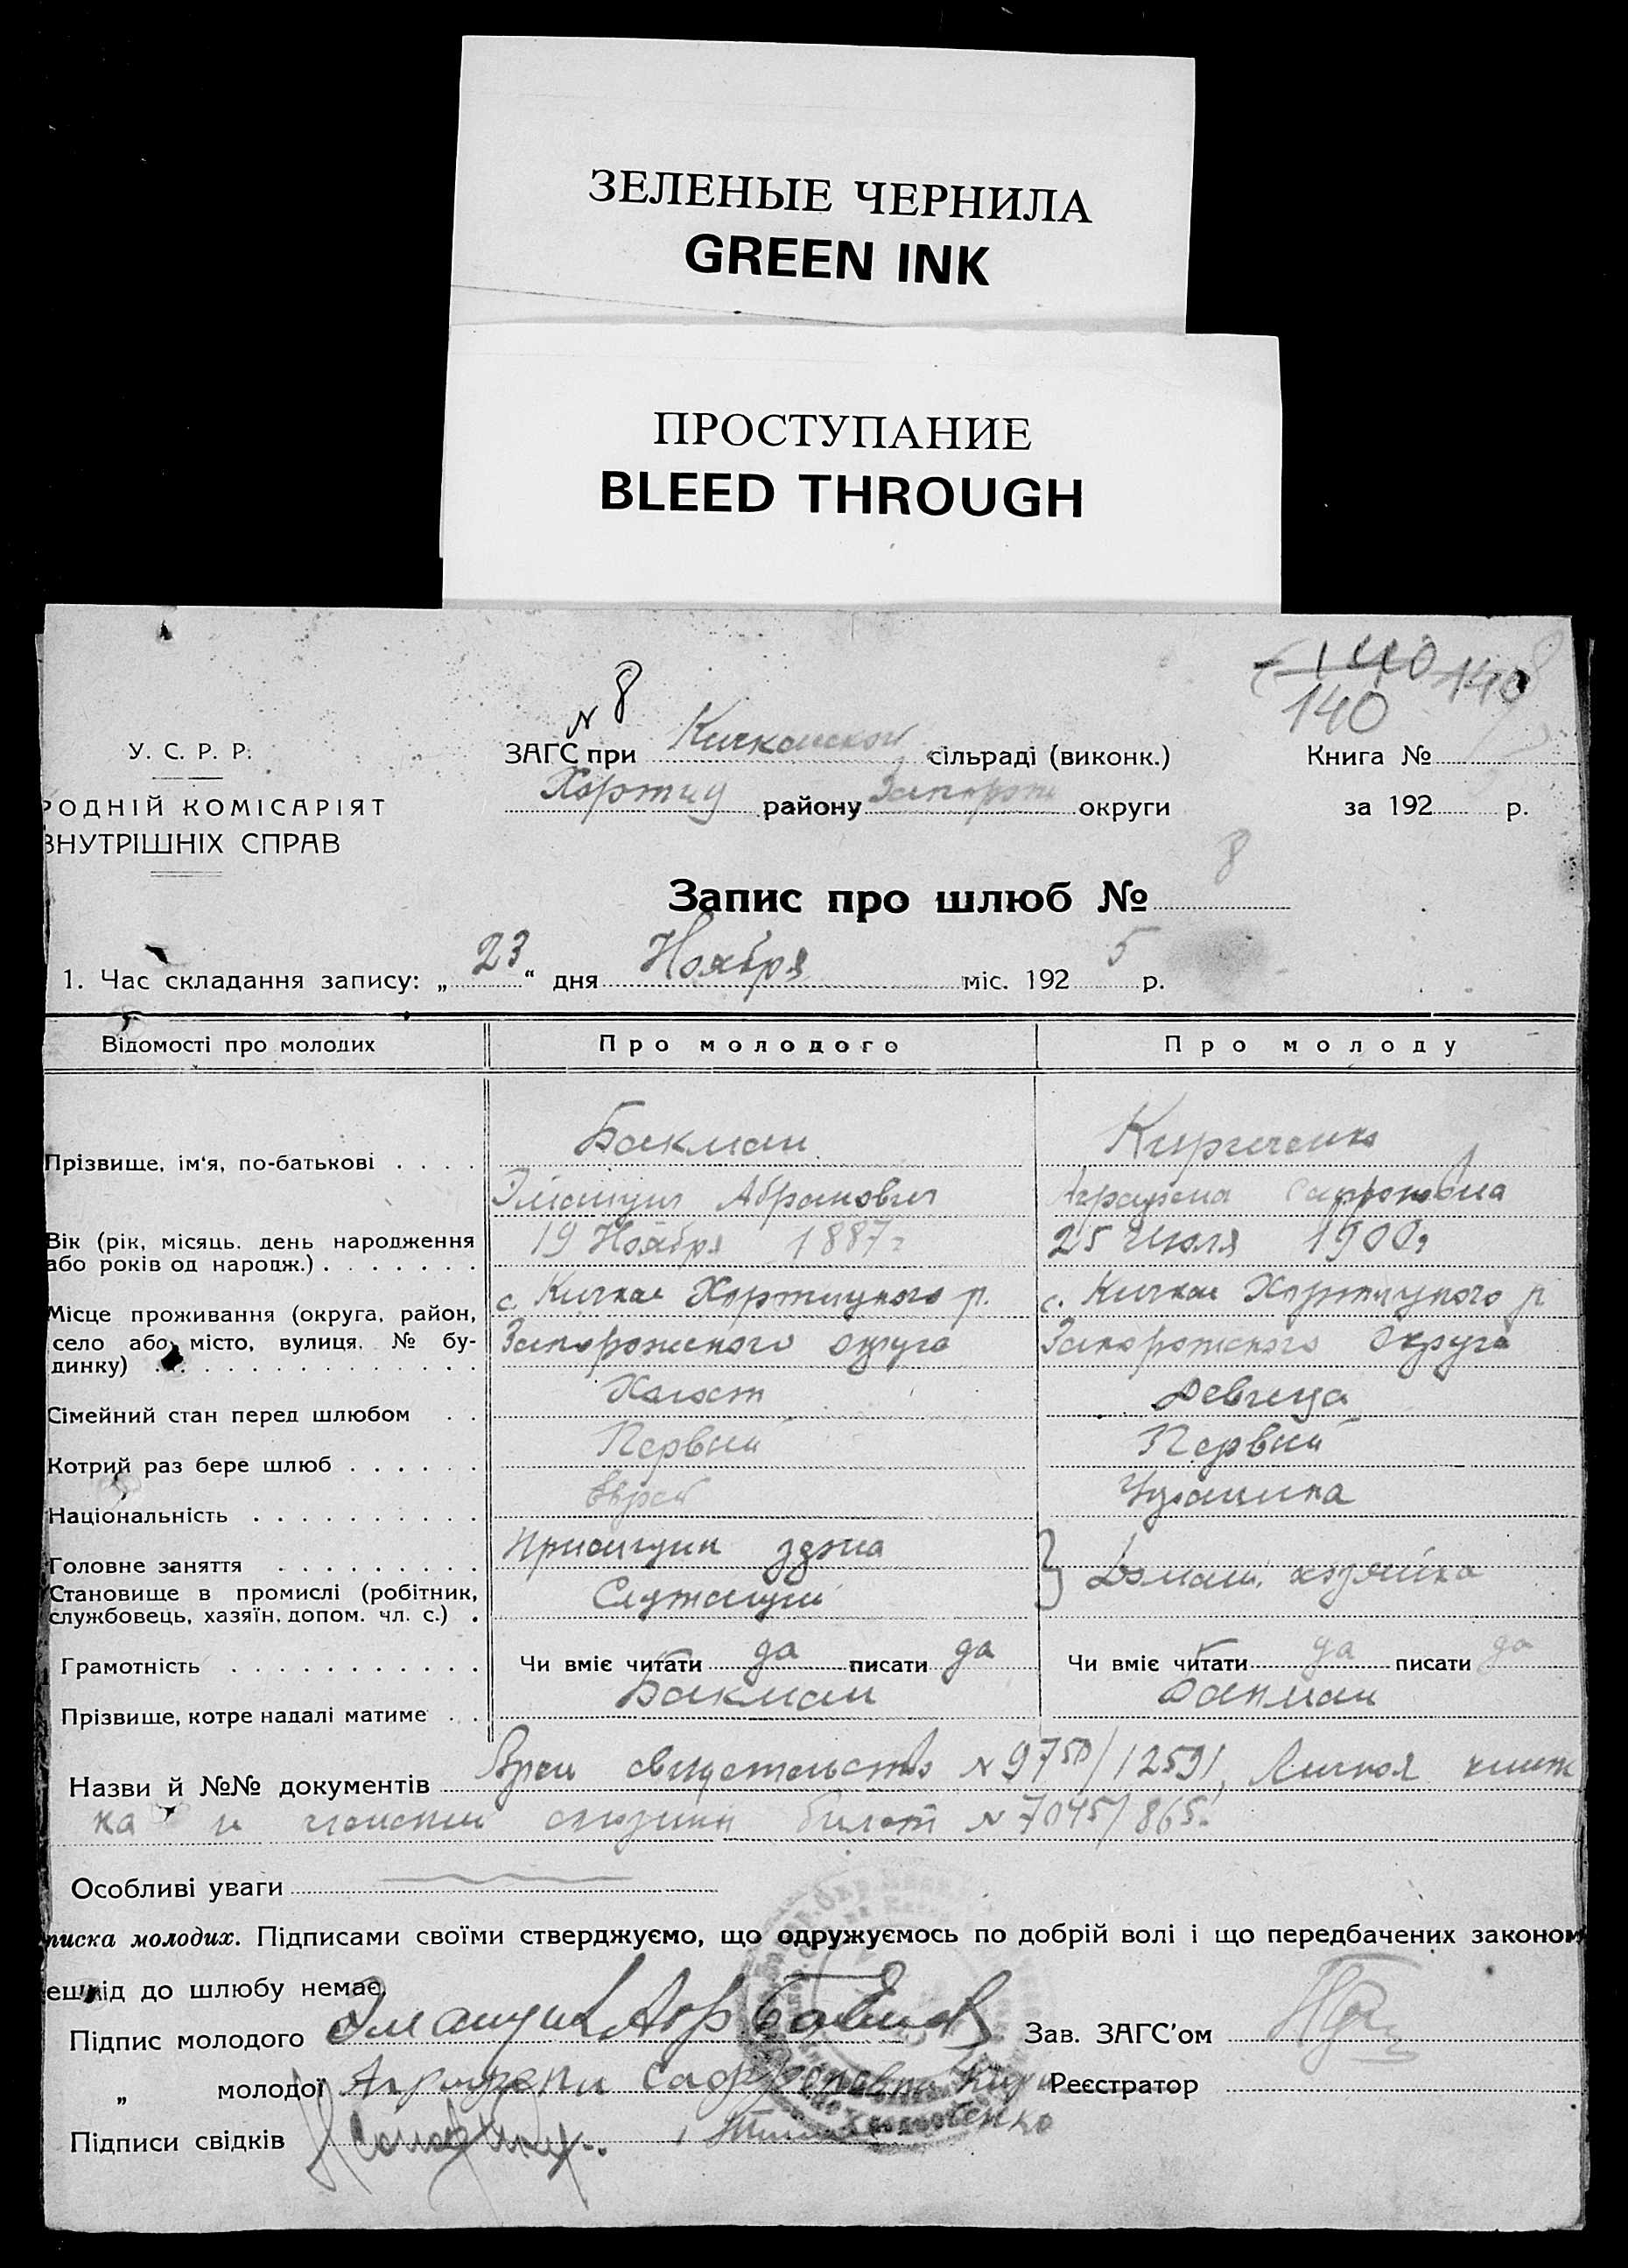 ЗЕЛЕНЫЕ ЧЕРНИЛА
GREEN INK
ПРОСТУПАНИЕ
BLEED THROUGH
140 140
140
N 8
У. С. Р. Р.
ЗАГС при Кичкасской сільраді (виконк.) Книга №
Хортиц району Запорож округи за 192 р.
РОДНІЙ КОМІСАРІЯТ
ВНУТРІШНІХ СПРАВ
Запис про шлюб № 8
1. Час складання запису: „23“ дня Ноября міс. 192 5 р.
Відомості про молодих Про молодого Про молоду
Прізвище, ім‘я, по-батькові . . . . Бакман Кириченко
Абрамович Аграфена Сафроновна
Вік (рік, місяць. день народження 19 Ноября 1887 г 25 Июля 1900 г
або років од народж.) . . . . . . .
Місце проживання (округа, район, с. Кичкас Хортицкого р. с. Кичкас Хортицкого р
село або місто, вулиця, № бу- Запорожского округа Запорожского Округа
динку) . . . . . . . . . . . .
Сімейний стан перед шлюбом . . Холост Девица
Котрий раз бере шлюб . . . . . . Первый Первый
Національність . . . . . . . . . . Еврей
Головне заняття . . . . . . . . . Домаш. хозяйка
Становище в промислі (робітник, Служащий
службовець, хазяїн, допом. чл. с.) .
Грамотність . . . . . . . . . . . Чи вміє читати да писати да Чи вміє читати да писати да
Прізвище, котре надалі матиме . . Бакман Бакман
Назви й №№ документів свидетельство N 9750/12591, Личная книж
ка и билет N 7045/865.
Особливі уваги
писка молодих. Підписами своїми стверджуємо, що одружуємось по добрій волі і що передбачених законом
ешкід до шлюбу немає.
Підпис молодого Зав. ЗАГС’ом
„ молодої Реєстратор
Підписи свідків